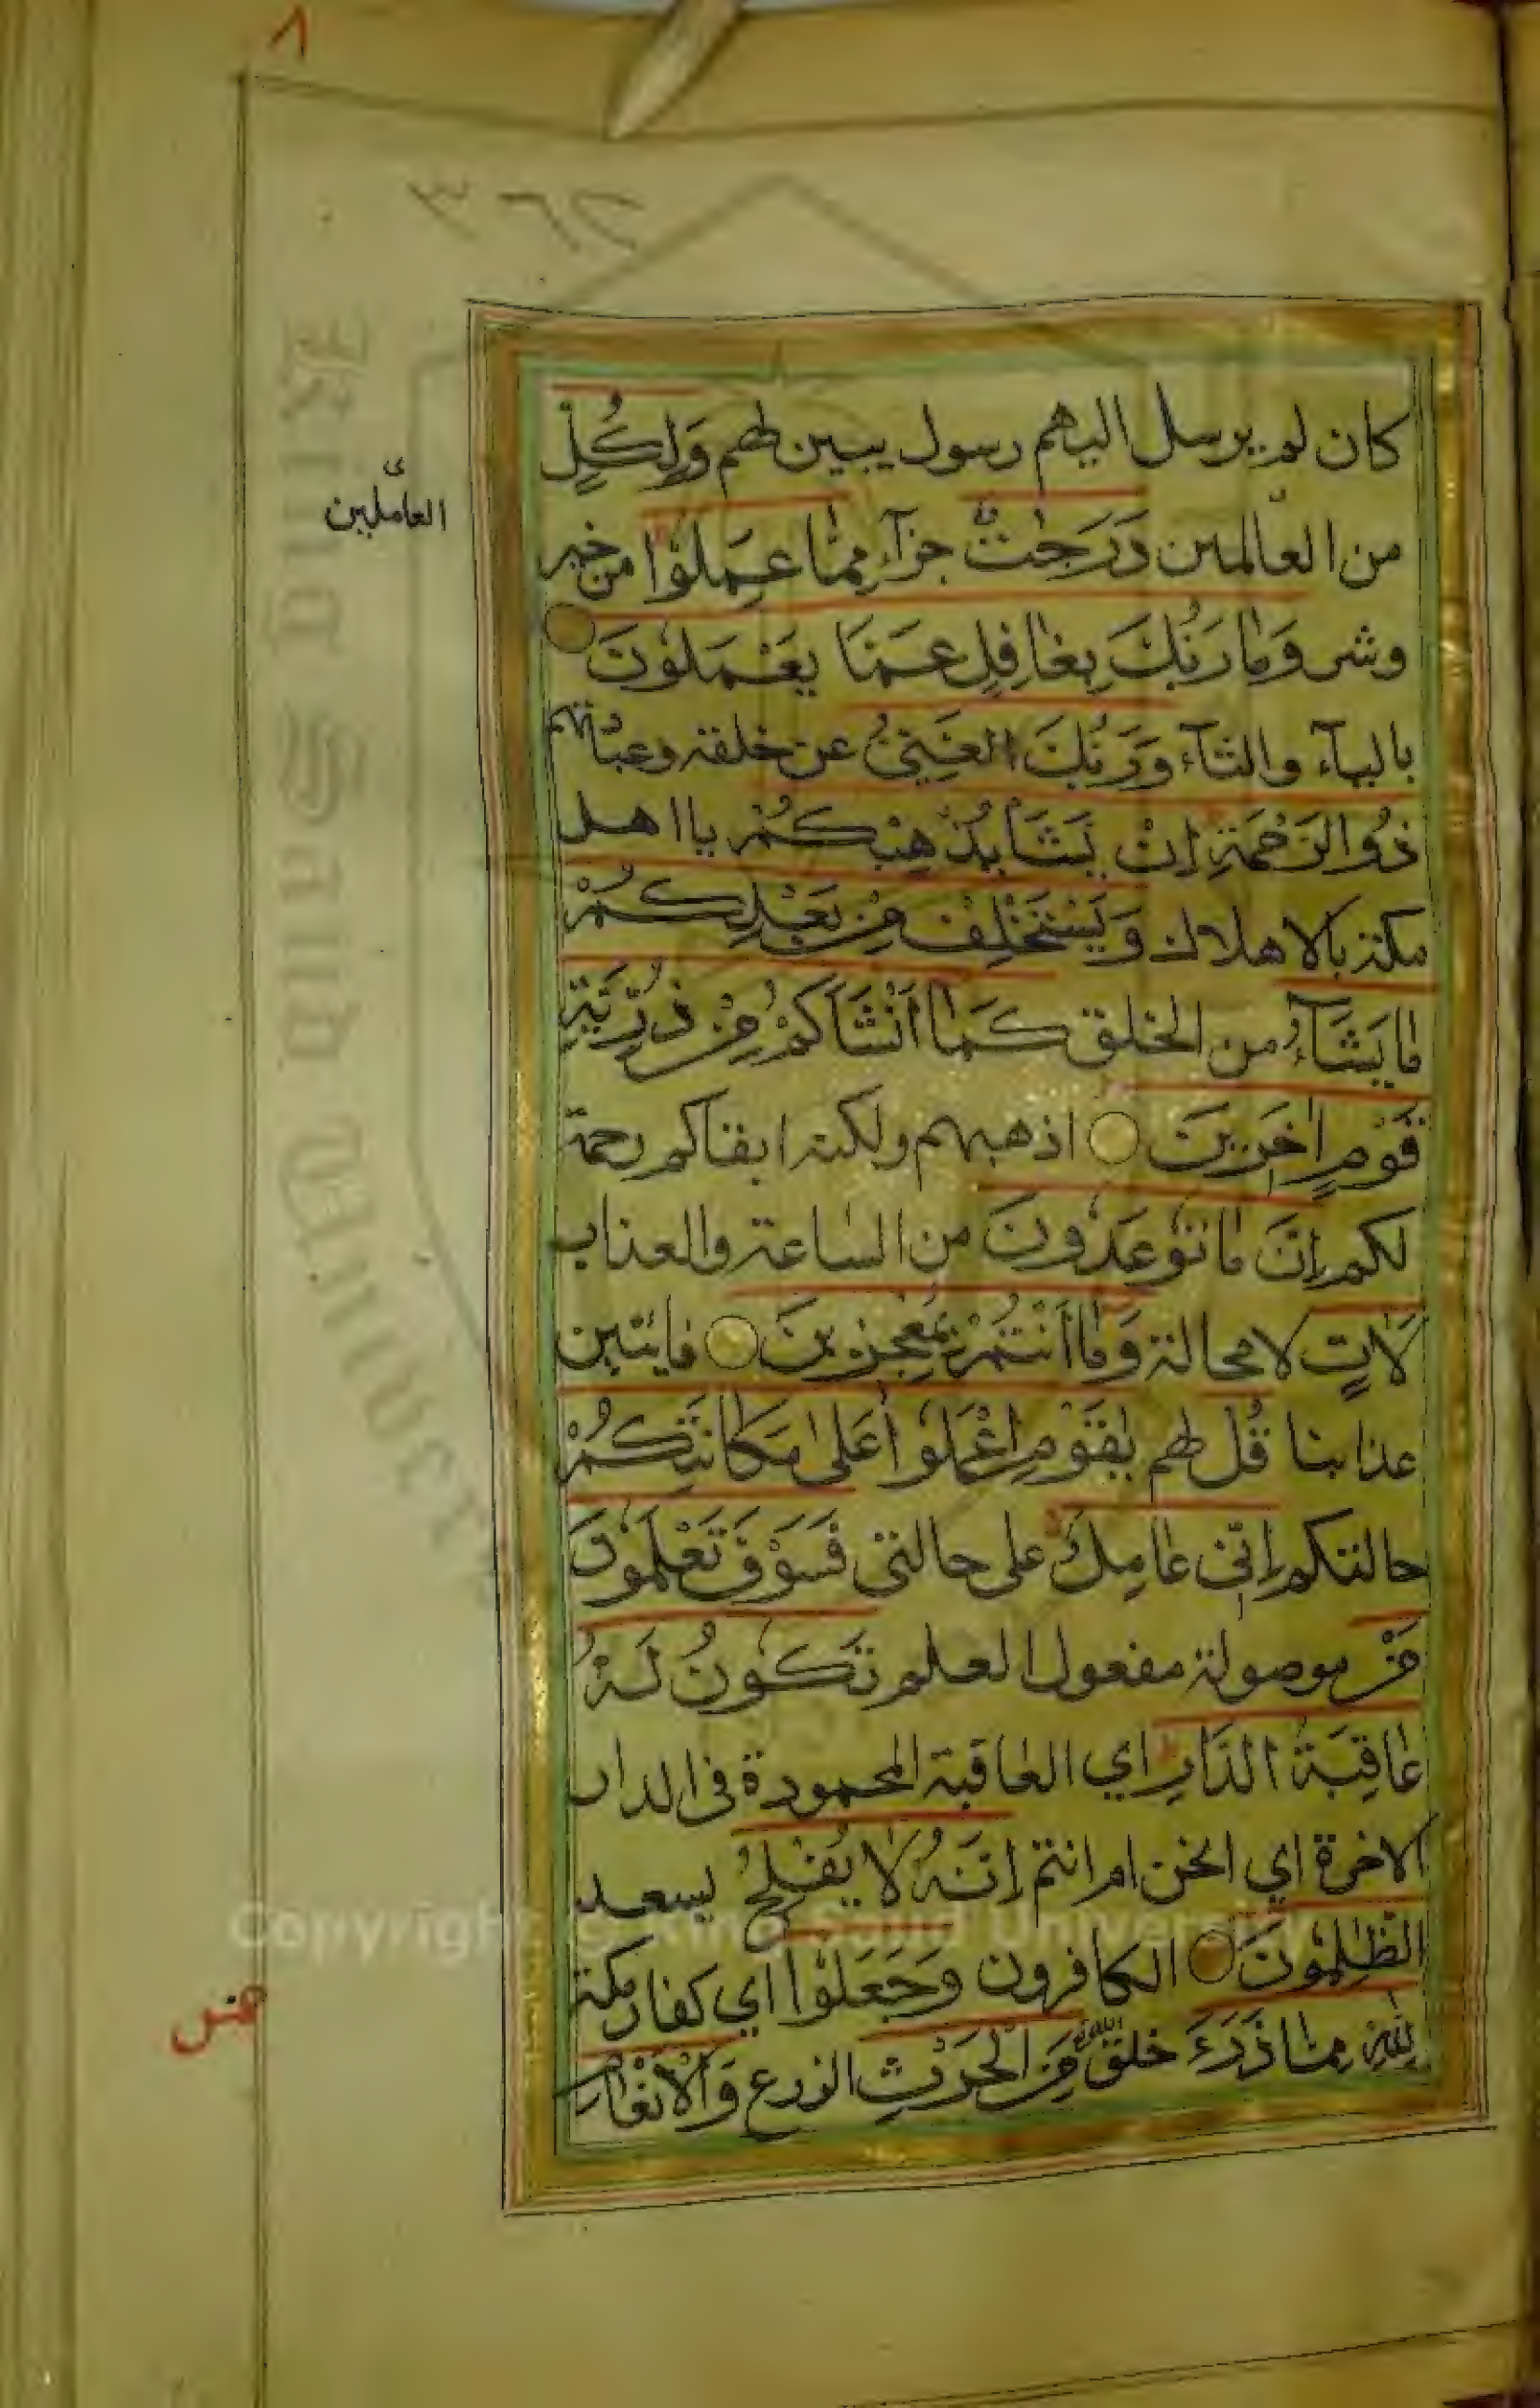 ٨
٣٦٢
كان لم يرسل اليهم رسول يبين لهم وَلِكُلٍّ
العاملين
من العالمين دَرَجٰتٌ جزآء مِمَّا عَمِلُوْا من خير
وشر وَمَا رَبُّكَ بِغَافِلٍ عَمَّا يَعْمَلُوْنَ
بالياء والتآء وَرَبُّكَ الغَنِيُّ عن خلقه وعباتهم
ذُو الرَّحْمَةِ اِنْ يَشَأْ يُذْهِبْكُمْ يا اهل
مكة بالاهلاك وَيَسْتَخْلِفْ مِنْ بَعْدِكُمْ
مَا يَشَآءُ من الخلق كَمَا اَنْشَاَكُمْ مِنْ ذُرِّيَّةِ
قَوْمٍ اٰخَرِيْنَ اذهبهم ولكنه ابقاكم رحمة
لكم اِنَّ مَا تُوْعَدُوْنَ من الساعة والعذاب
لَاٰتٍ لا محالة وَمَا اَنْتُمْ بِمُعْجِزِيْنَ فايتين
عذابنا قُل لهم يٰقَوْمِ اعْمَلُوْا عَلٰى مَكَانَتِكُمْ
حالتكم اِنِّى عَامِلٌ على حالتى فَسَوْفَ تَعْلَمُوْنَ
مَنْ موصولة مفعول العلم تَكُوْنُ لَهُ
عَاقِبَةُ الدَّارِ اي العاقبة المحمودة فى الدار
الاخرة اي انحن ام انتم اِنَّهُ لَا يُفْلِحُ يسعد
الظّٰلِمُوْنَ الكافرون وَجَعَلُوْا اي كفار مكة
لِلّٰهِ مِمَّا ذَرَءَ خلق مِنَ الْحَرْثِ الزرع وَالْاَنْعَامِ
الله
King Saud University
Copyright © King Saud University